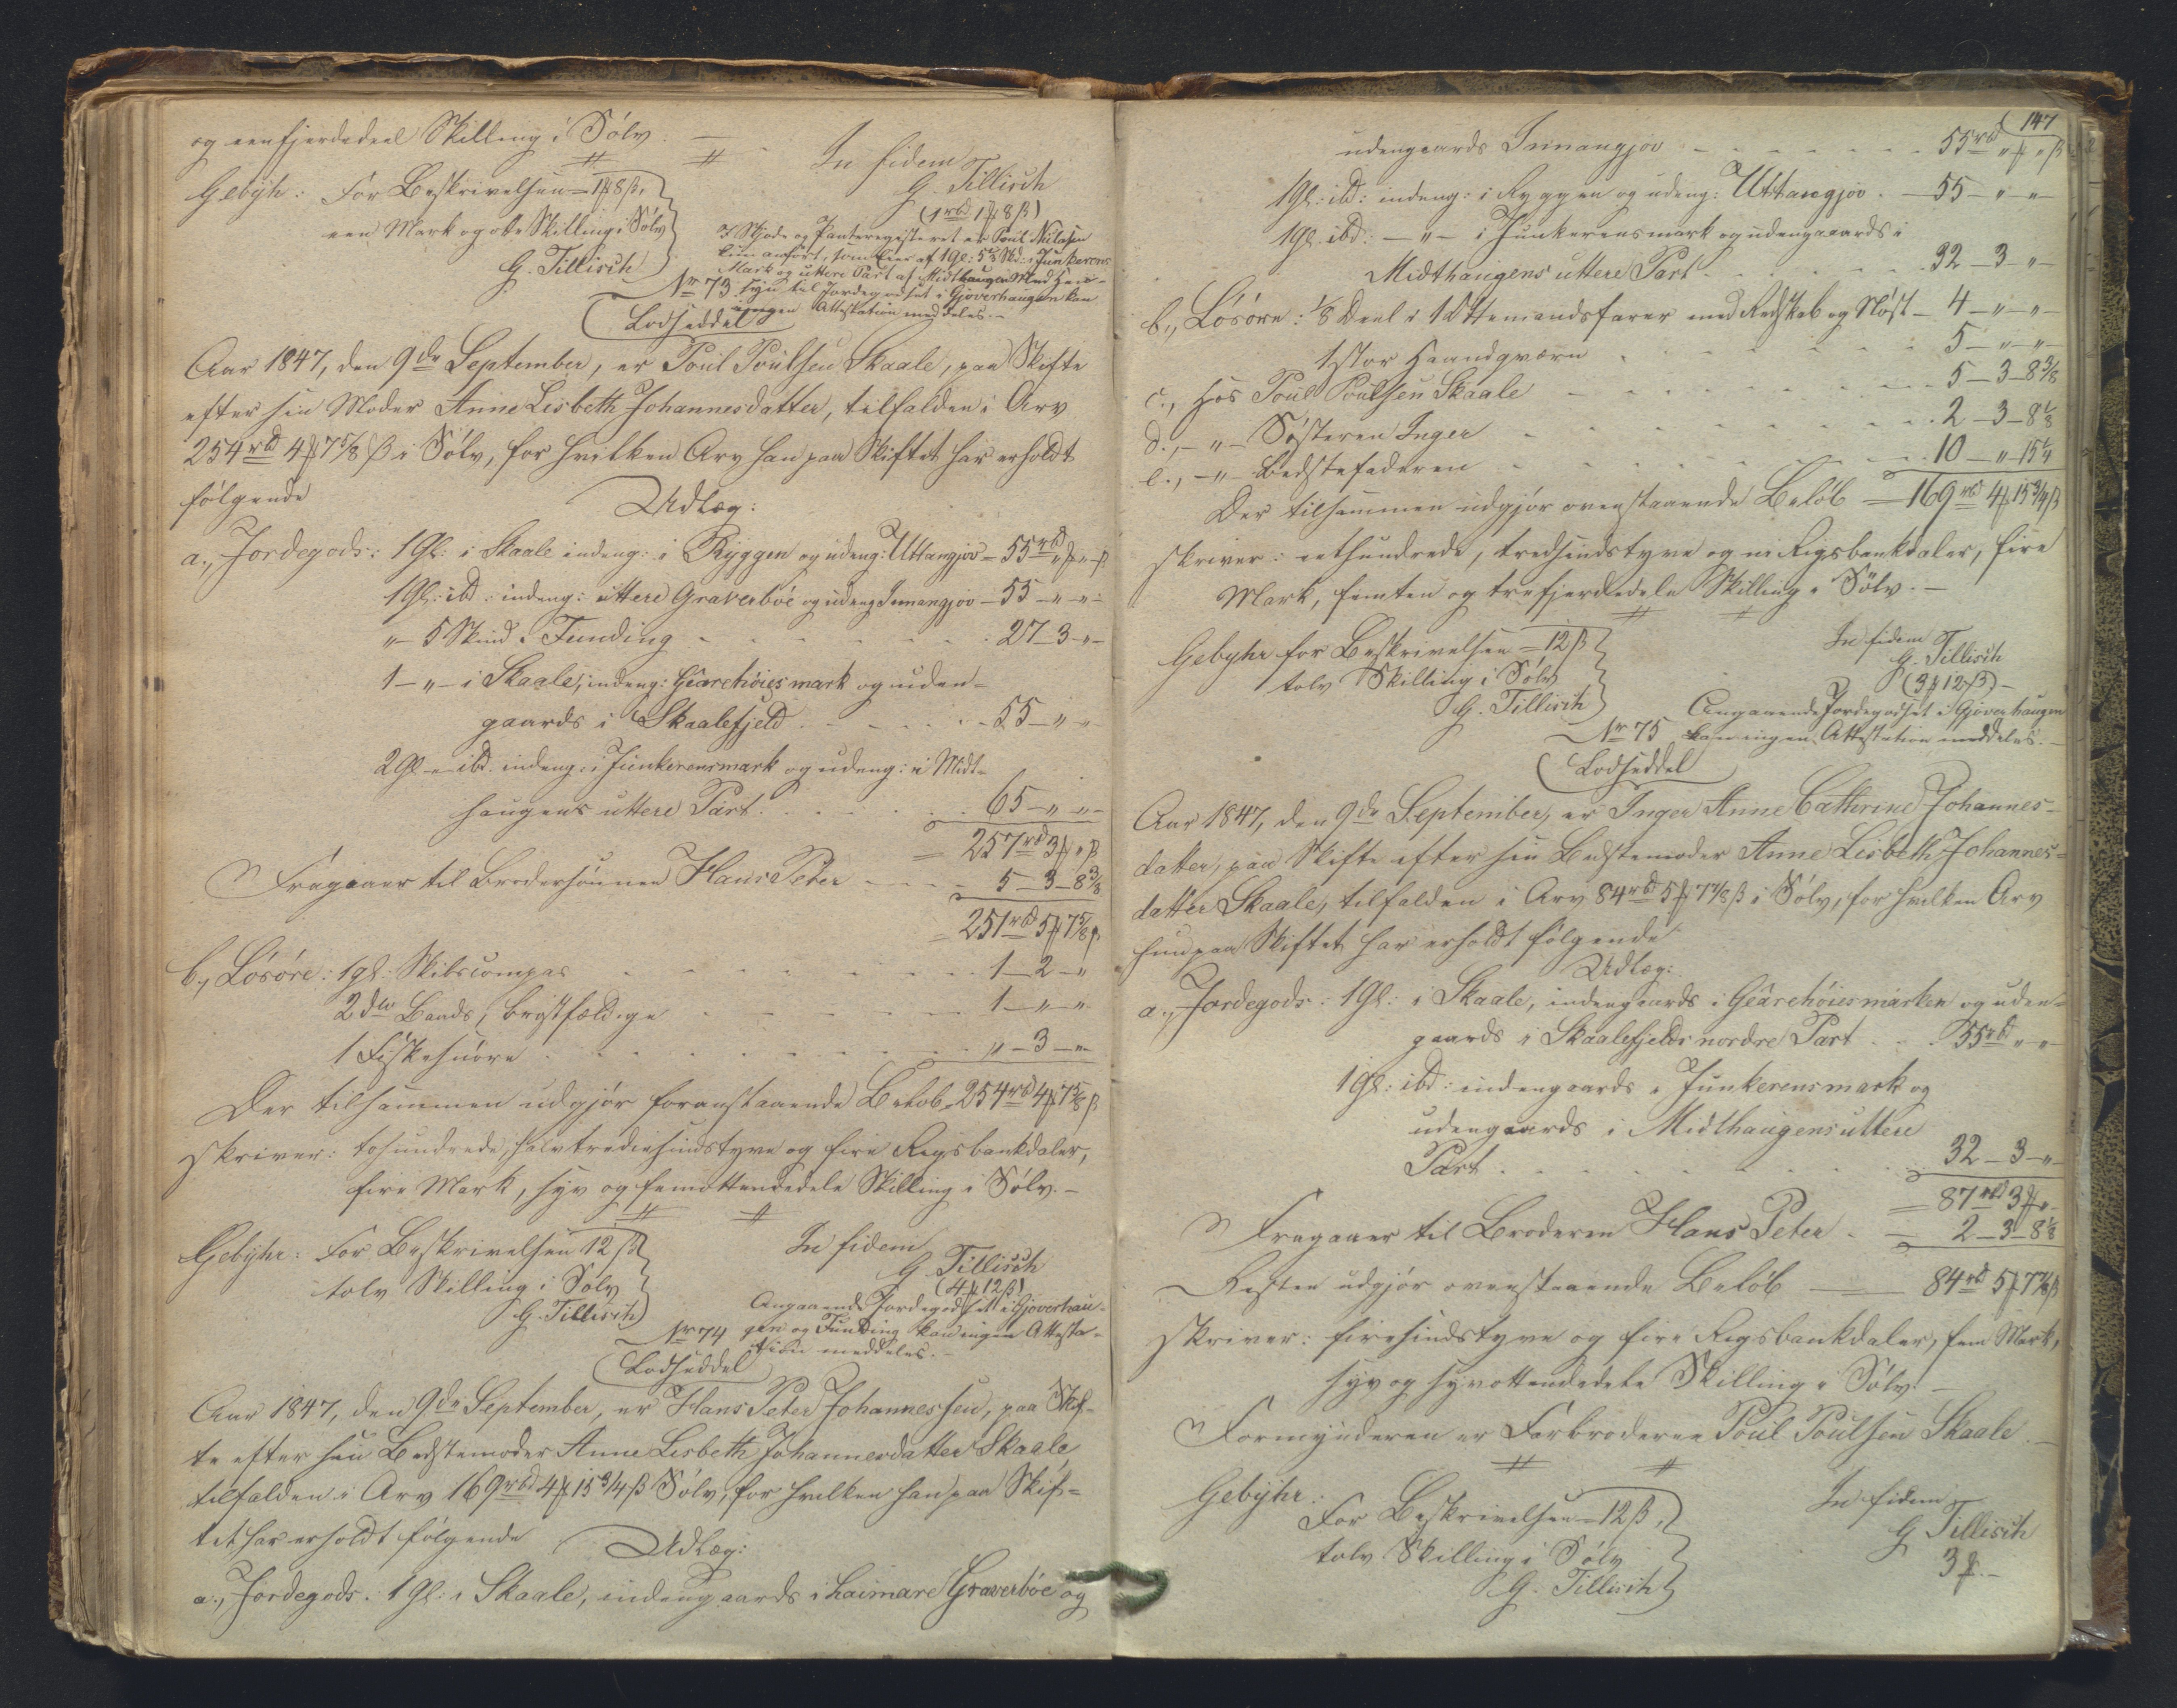 og een fjerdedeel Skilling i Sølv. —
In fidem
G. Tillisch
(1rbd 1ℳ 8ß)
Gebÿh: For Beskrivelsen = 1ℳ 8ß,
een Mark og otte Skilling i Sølv
G. Tillisch
I Skjøde og Panteregisteret er Poul Nielsen
kun anført, som Eier af 1 Gl: 5⅔ Skd: i Junkerens
Mark og uttere Part af Midthaugen Med Hen-
syn til Jordegodset i Gjøverhaugen kan
ingen Attestation meddeles. —
No 73
Lodseddel
Aar 1847, den 9de September, er Poul Poulsen Skaale, paa Skifte
efter sin Moder Anne Lisbeth Johannesdatter, tilfalden i Arv
254rbd 4ℳ 7⅝ ß i Sølv, for hvilken Arv han paa Skiftet har erholdt
følgende
Udlæg:
a., Jordegods: 1 Gl: i Skaale indeng: i Rÿggen og udeng: Uttangjov = 55rbd " ℳ " ß
1 Gl: ibd: indeng: uttere Graverböe og udeng Innangjov — 55 — " — " —
" — 5 Skind i Funding — 27 — 3 — " —
1 — " — i Skaale, indeng: Gearehöies mark og uden-
gaards i Skaalefjeld — 55 — " — "
2 Gl — ibd. indeng: i Junkerensmark og udeng: i Midt-
haugens uttere Part — 65 — " — " —
= 257rbd 3ℳ " ß
Fragaaer til Brodersönnen Hans Peter — 5 — 3 — 8⅜
= 251rbd 5ℳ 7⅝ ß
b., Lösöre: 1 gl: Skibscompas — 1 — 2 — "
2 do Baads, bröstfældige — 1 — " — "
1 Fiskesnöre — " — 3 — " —
Der tilsammen udgjör foranstaaende Belöb = 254rbd 4ℳ 7⅝ ß
skriver: tohundrede, halvtrediesindstyve og fire Rigsbankdaler,
fire Mark, syv og femottendedele Skilling i Sölv. —
Gebÿhr: For Beskrivelsen 12 ß
tolv Skilling i Sølv
G. Tillisch
In fidem
G. Tillisch
(4ℳ 12ß)
Angaaende Jordegodset i Gjöverhau-
gen og Funding kan ingen Attesta-
tion meddeles. —
No 74
Lodseddel
Aar 1847, den 9de September, er Hans Peter Johannessen, paa Skif-
te efter sin Bedstemoder Anne Lisbeth Johannesdatter Skaale,
tilfalden i Arv 169rbd 4ℳ 15¾ ß Sølv, for hvilken han paa Skif-
tet har erholdt følgende
Udlæg:
a., Jordegods: 1 Gl: i Skaale, indengaards i haimare Graverböe og
147
udengaards Innangjov — 55rbd " ℳ " ß
1 Gl: ibd: indeng: i Ryggen og udeng: Uttangjov — 55 — " — " —
1 Gl. ibd: — " — i Junkerensmark og udengaards i
Midthaugens uttere Part — 32 — 3 — " —
b., Lösöre: ⅛ Deel i 1 Ottemandsfarer med Redskab og Nöst — 4 — " — " —
1 stor Haandqværn — 5 — " — " —
c., Hos Poul Poulsen Skaale — 5 — 3 — 8⅜
d., — " — Söstern Inger — 2 — 3 — 8⅛
e., — " — Bedstefaderen — 10 — " — 15¼
Der tilsammen udgjör ovenstaaende Belöb = 169rbd 4ℳ 15¾ ß
skriver: eethundrede, tredsindstyve og ni Rigsbankdaler, fire
Mark, femten og trefjerdedele Skilling i Sölv. —
Gebyhr for Beskrivelsen = 12 ß
tolv Skilling i Sølv
G. Tillisch
In fidem
G. Tillisch
(3ℳ 12ß) —
Angaaende Jordegodset i Gjöverhaugen
kan ingen Attestation meddeles. —
No 75
Lodseddel
Aar 1847, den 9de September, er Inger Anne Cathrine Johannes-
datter, paa Skifte efter sin Bedstemoder Anne Lisbeth Johannes-
datter Skaale, tilfalden i Arv 84rbd 5ℳ 7⅞ ß i Sølv, for hvilken Arv
hun paa Skiftet har erholdt følgende
Udlæg:
a., Jordegods: 1 Gl: i Skaale, indengaards i Gearehöiesmarken og uden-
gaards i Skaalefjelds nordre Part — 55rbd " — " —
1 Gl: ibd: indengaards i Junkerensmark og
udengaards i Midthaugens uttere
Part — 32 — 3 — " —
= 87rbd 3ℳ " —
Fragaaer til Broderen Hans Peter — 2 — 3 — 8⅛
Resten udgjör ovenstaaende Belöb — 84rbd 5ℳ 7⅞ ß
skriver: firesindstyve og fire Rigsbankdaler, fem Mark,
syv og syvottendedele Skilling i Sölv. —
Formynderen er Farbroderen Poul Poulsen Skaale. —
Gebÿhr:
For Beskrivelsen = 12 ß,
tolv Skilling i Sølv
G. Tillisch
In fidem
G Tillisch
3ℳ. —